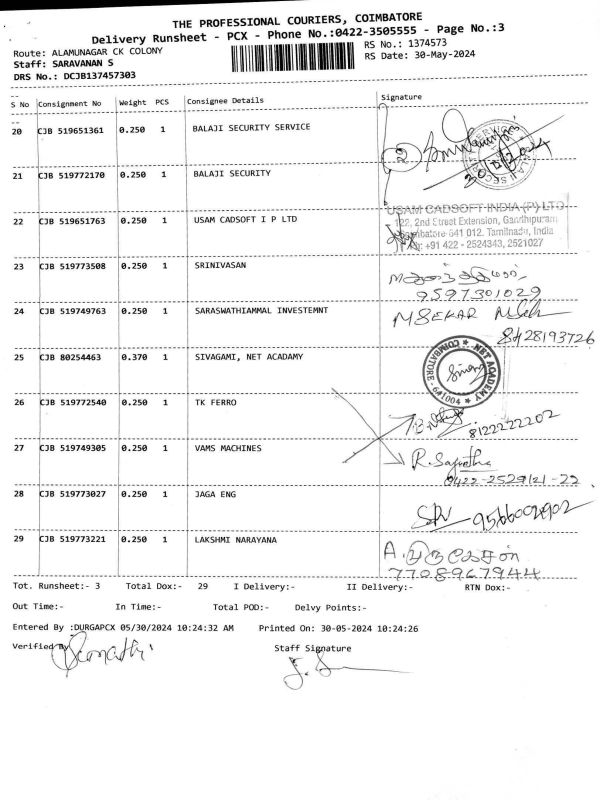 THE PROFESSIONAL COURIERS, COIMBATORE
Delivery Runsheet - PCX - Phone No.:0422-3505555 - Page No.:3
Route: ALAMUNAGAR CK COLONY
RS No.: 1374573
Staff: SARAVANAN S
RS Date: 30-May-2024
DRS No.: DCJB137457303
S No Consignment No Weight PCS Consignee Details Signature
20 CJB 519651361 0.250 1 BALAJI SECURITY SERVICE
21 CJB 519772170 0.250 1 BALAJI SECURITY
22 CJB 519651763 0.250 1 USAM CADSOFT I P LTD
USAM CADSOFT INDIA (P) LTD
122, 2nd Street Extension, Gandhipuram
Coimbatore 641 012. Tamilnadu, India
Ph: +91 422 - 2524343, 2521027
23 CJB 519773508 0.250 1 SRINIVASAN
9597301029
24 CJB 519749763 0.250 1 SARASWATHIAMMAL INVESTEMNT
M SEKAR
8428193726
25 CJB 80254463 0.370 1 SIVAGAMI, NET ACADAMY
NET ACADEMY
COIMBATORE - 641004
26 CJB 519772540 0.250 1 TK FERRO
8122222202
27 CJB 519749305 0.250 1 VAMS MACHINES
0422-2529121-22
28 CJB 519773027 0.250 1 JAGA ENG
29 CJB 519773221 0.250 1 LAKSHMI NARAYANA
A. முருகேசன்
7708967944
Tot. Runsheet:- 3 Total Dox:- 29 I Delivery:- II Delivery:- RTN Dox:-
Out Time:- In Time:- Total POD:- Delvy Points:-
Entered By :DURGAPCX 05/30/2024 10:24:32 AM Printed On: 30-05-2024 10:24:26
Verified By
Staff Signature